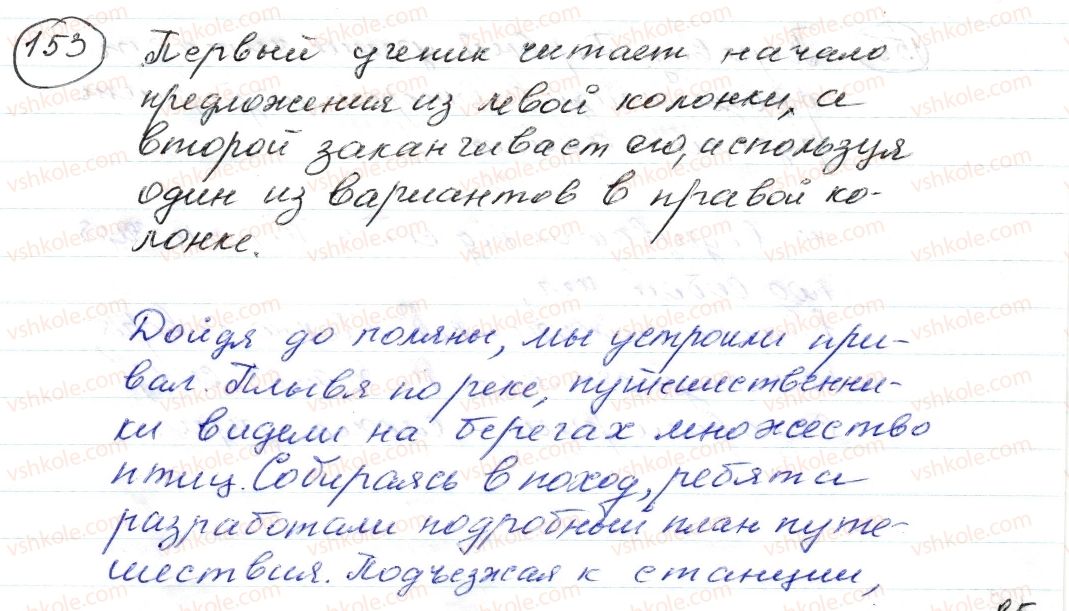 153
Первый ученик читает начало
предложения из левой колонки, а
второй заканчивает его, используя
один из вариантов в правой ко-
лонке.
Дойдя до поляны, мы устроили при-
вал. Плывя по реке, путешественни-
ки видели на берегах множество
птиц. Собираясь в поход, ребята
разработали подробный план путе-
шествия. Подъезжая к станции,